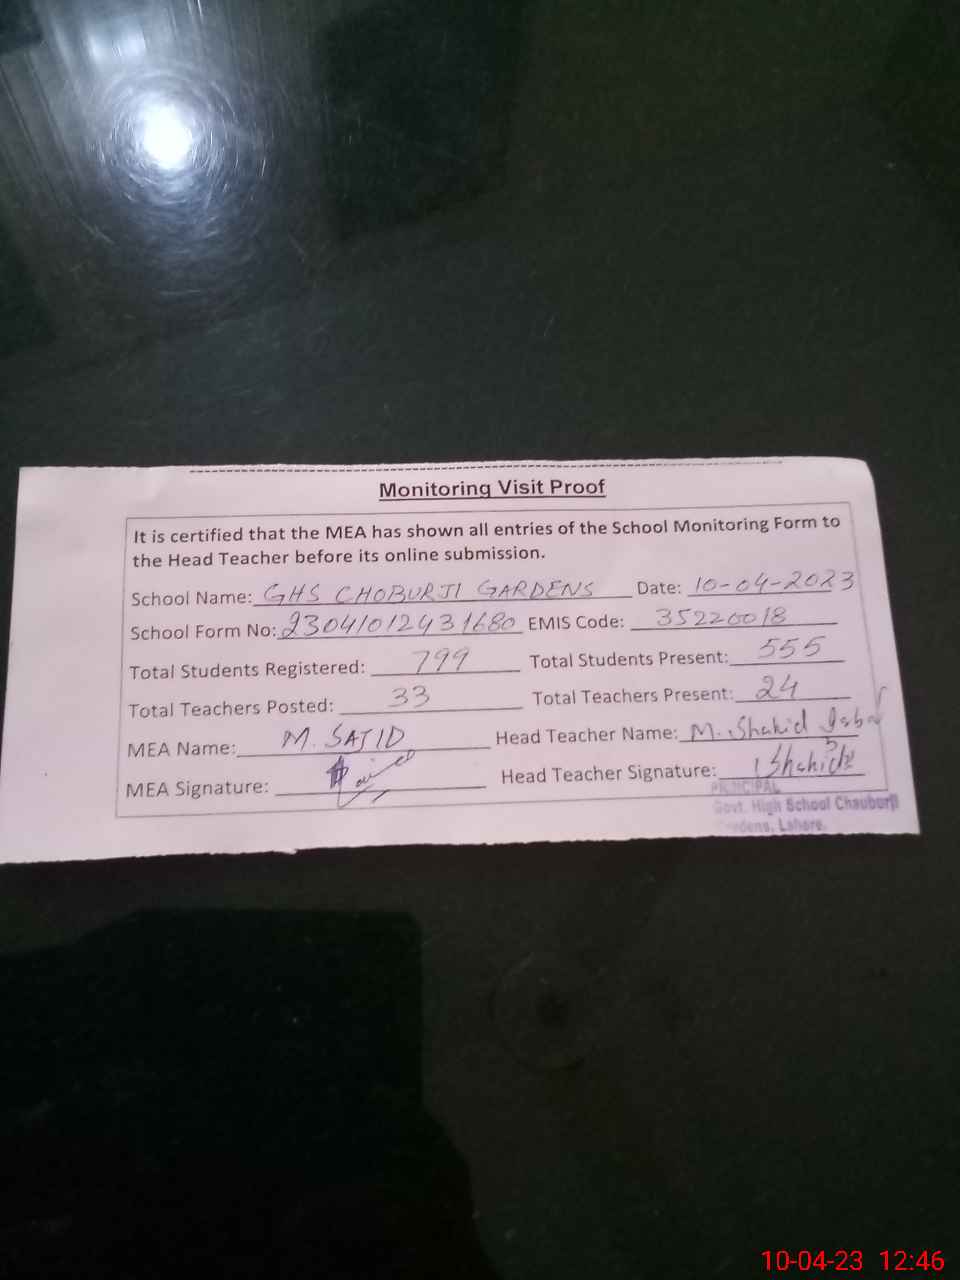 Monitoring Visit Proof
It is certified that the MEA has shown all entries of the School Monitoring Form to
the Head Teacher before its online submission.
School Name: GHS CHOBURJI GARDENS Date: 10-04-2023
School Form No: 23041012431680 EMIS Code: 35220018
Total Students Registered: 799 Total Students Present: 555
Total Teachers Posted: 33 Total Teachers Present: 24
MEA Name: M. SAJID Head Teacher Name: M. Shahid Iqbal
MEA Signature: Head Teacher Signature: Shahid
PRINCIPAL
Govt. High School Chauburji
Gardens, Lahore.
10-04-23 12:46